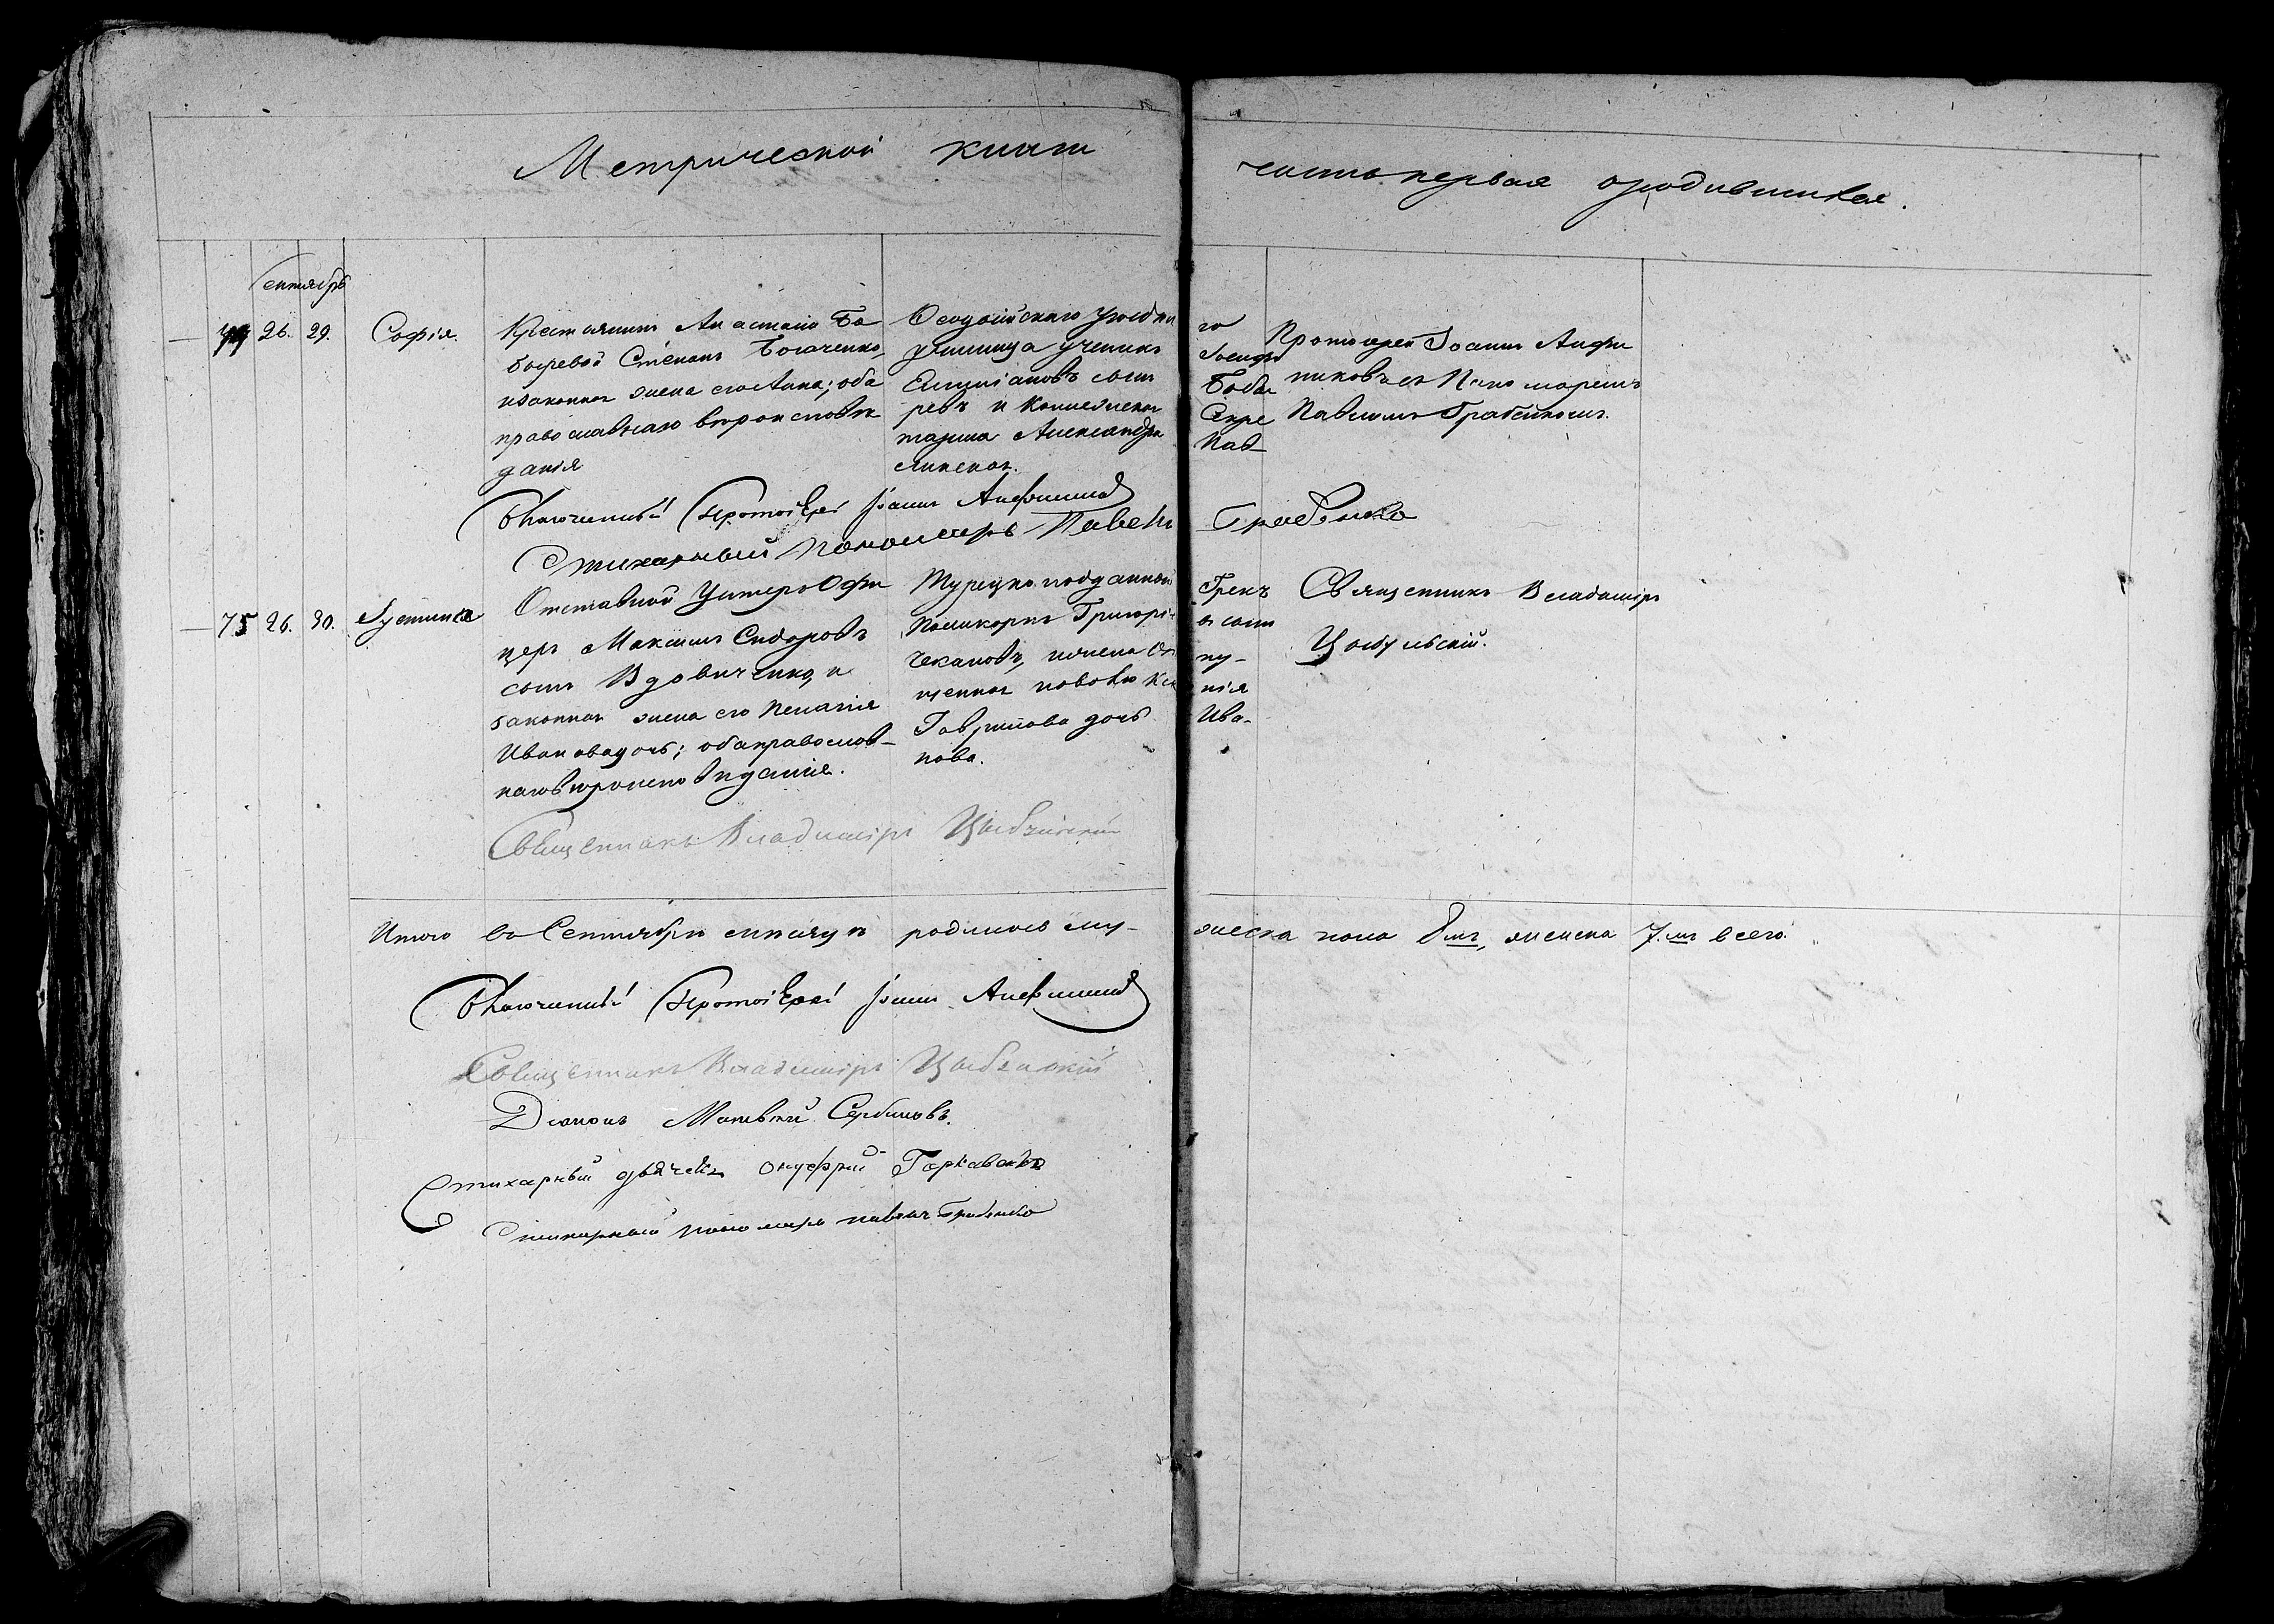 Метрической книги часть первая о родившихся.
Сентябрь
74 26. 29. Софія.
Крестьянинъ Анастасіи Бо
быревой Степанъ Богаченко,
изаконная жена его Анна; оба
православнаго вѣроисповѣ
данія
Ѳеодосійскаго уѣзднаго
училища ученикъ Іосифъ
Емиліановъ сынъ Бобы
ревъ и Коллежскаго Секре
таря Александра Пав
Протоіерей Іоаннъ Анфи
ников съ Пономаремъ
Павломъ Грабенкомъ.
Благочинный Протоіерей Іоаннъ
Стихарный пономарь Павелъ Грабенко
75 26. 30. Іустина
Отставной Унтеръ Офи
церъ Максимъ Сидоровъ
сынъ Вдовиченко, и
законная жена его Пелагія
Ивановадочь; обаправослав-
наговѣроисповѣданія.
Турецкоподданной Грекъ
Поликарпъ Григорі- въ сынъ
Чекановъ,
Гаврилова дочь Ива-
нова.
Священникъ Владиміръ
Цыбульскій.
Священникъ Владиміръ Цыбульскій
Итого въ Сентябрѣ мѣсяцѣ родилось му- жеска пола 8мь, женска 7.мь всего.
Благочинный Протоіерей Іоаннъ
Священникъ Владиміръ Цыбульскій
Діаконъ Матвѣй Сербиновъ.
Стихарный дьячекъ Онуфрій
Стихарный пономарь павелъ Грабенко